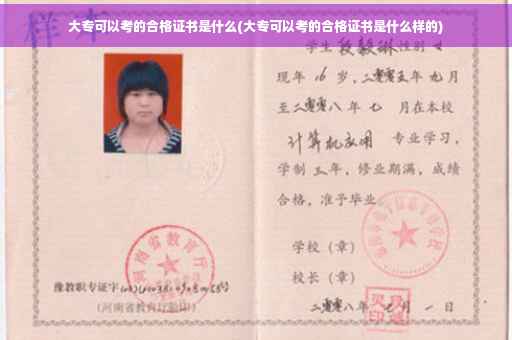 大专可以考的合格证书是什么(大专可以考的合格证书是什么样的)
样本
学生 段毅琳 性别 女
现年 16 岁，二零零五年 九月
至二零零八年 七 月在本校
计算机应用 专业学习，
学制 三年，修业期满，成绩
合格，准予毕业。
学校（章）
校长（章）
二零零八年 七 月 一 日
河南省教育厅
豫教职专证字
(河南省教育厅验印)